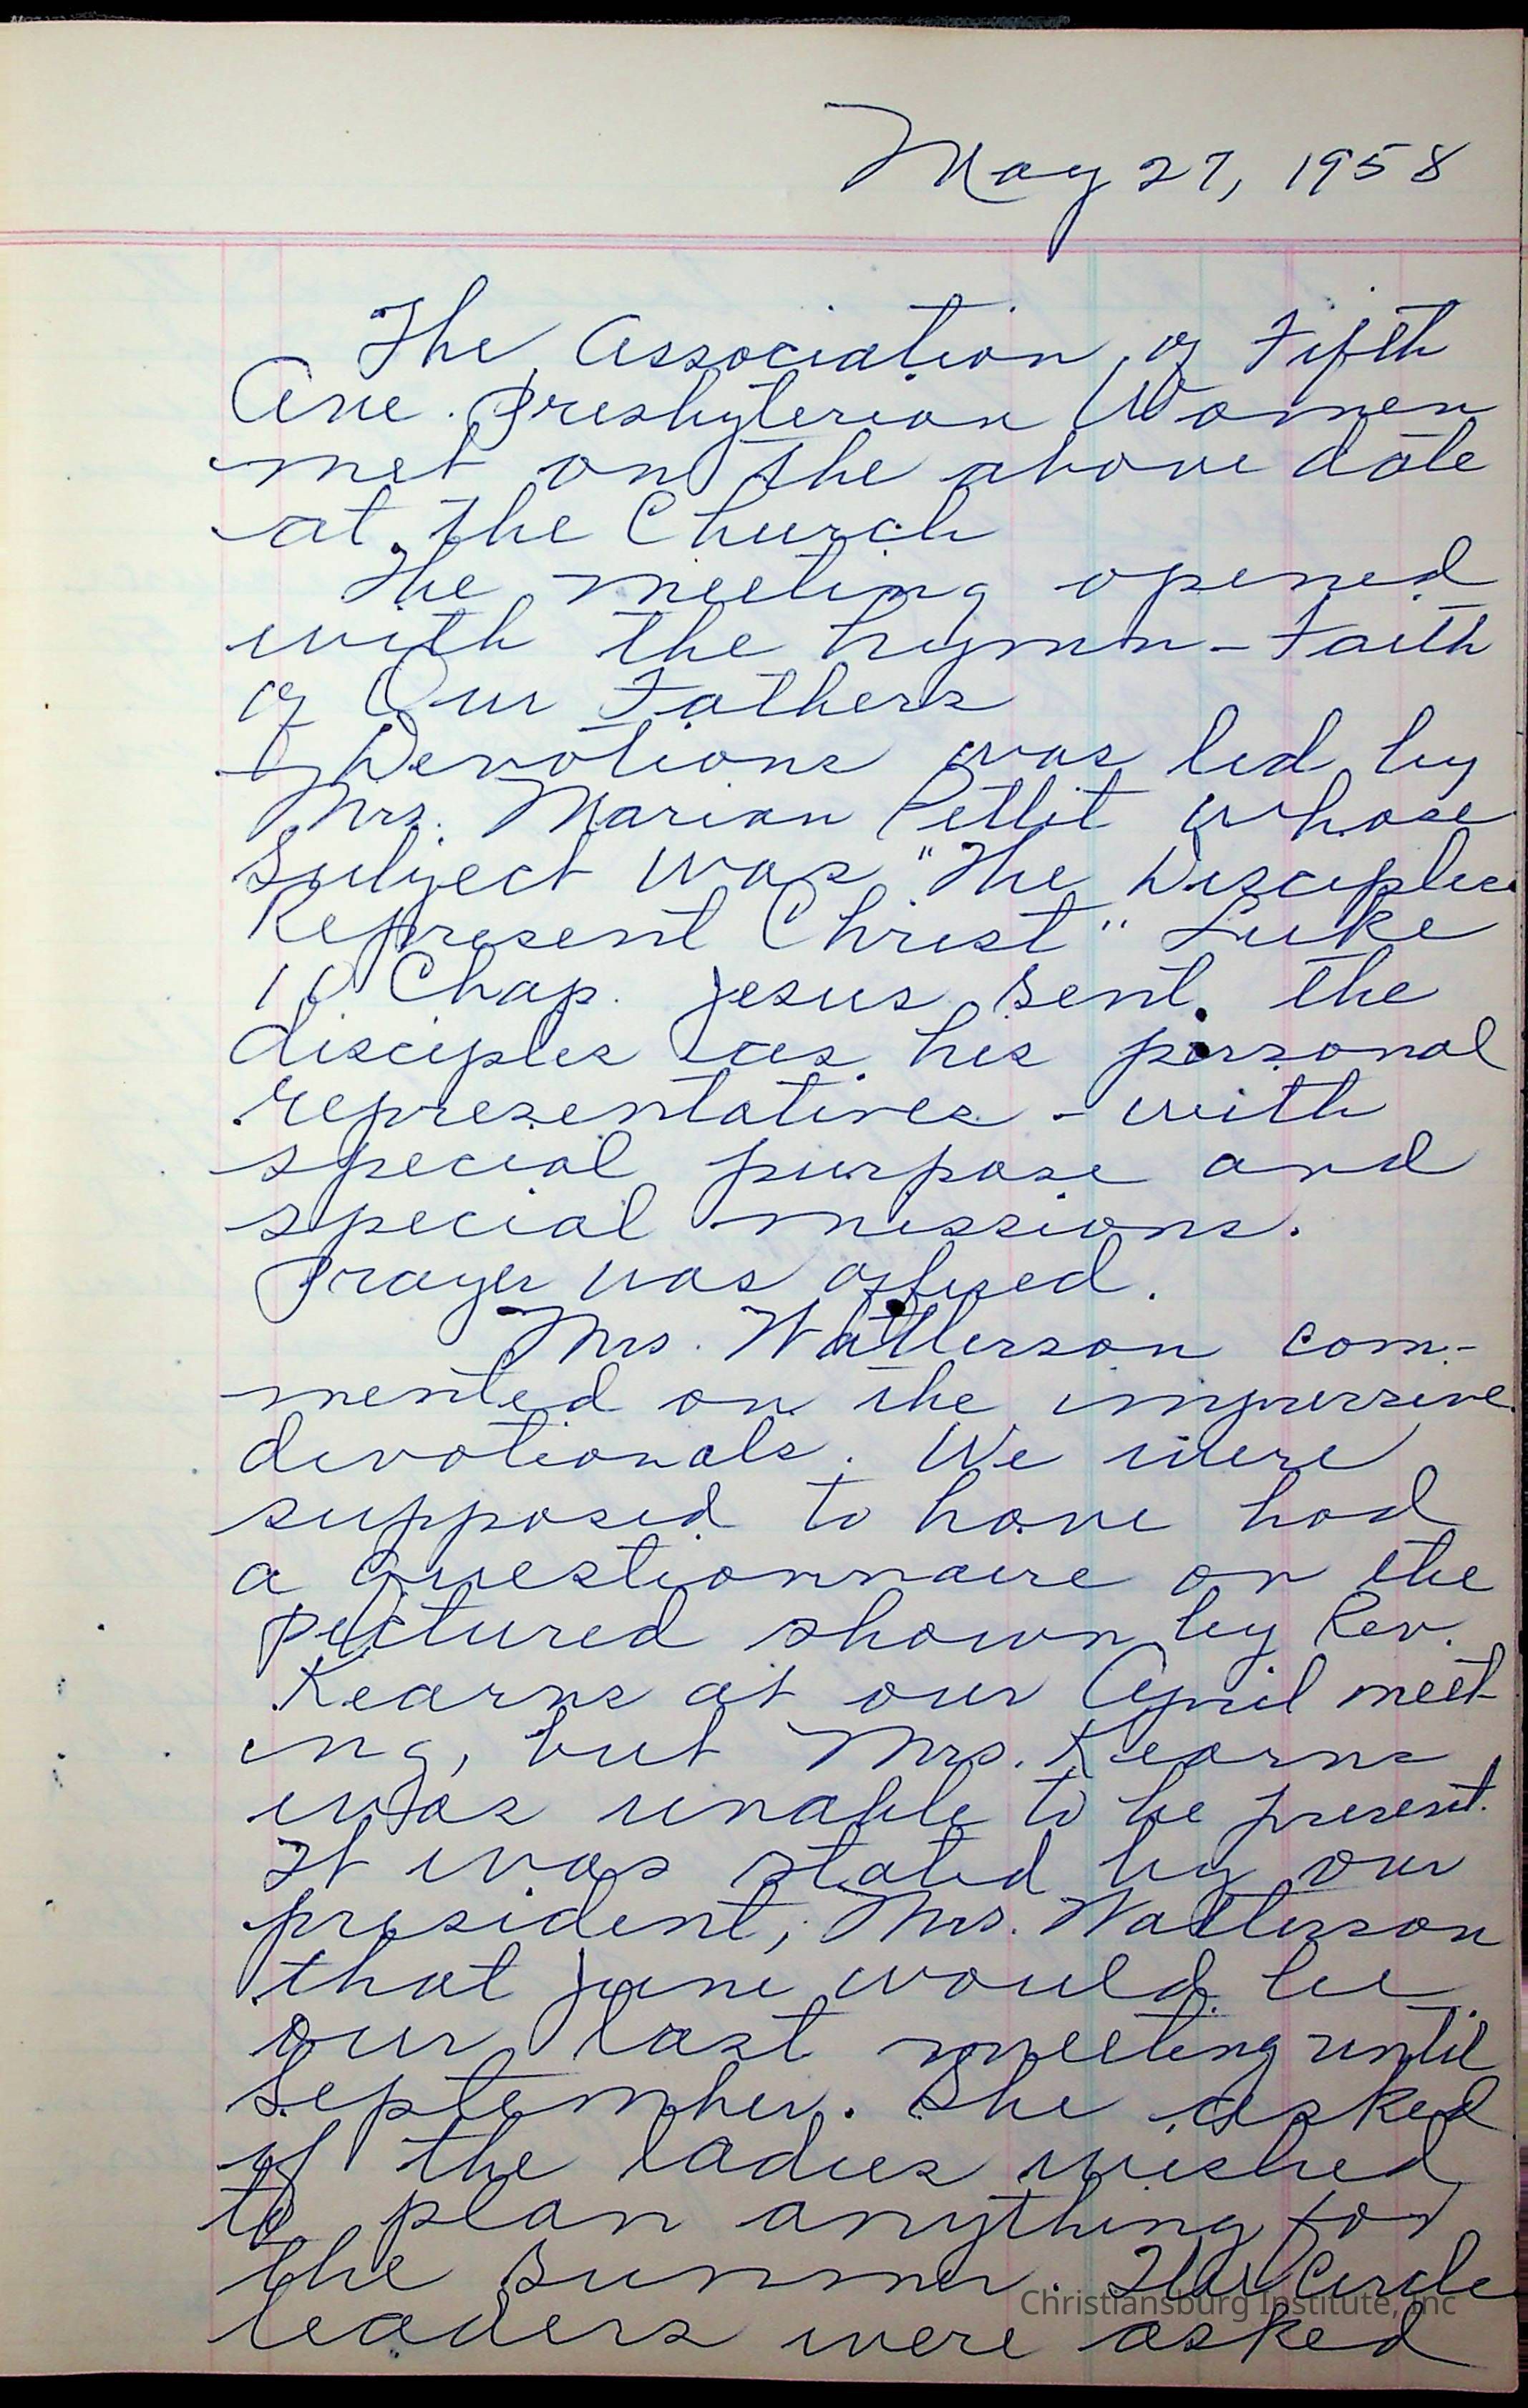 May 27, 1958
The Association of Fifth
Ave. Presbyterian Women
met on the above date
at the Church
The meeting opened
with the hymn - Faith
of Our Fathers
Devotions was led by
Mrs. Marian Pettit whose
subject was "The Disciples
Represent Christ" Luke
10 Chap. Jesus sent the
disciples as his personal
representatives - with
special purpose and
special missions.
Prayer was offered.
Mrs. Watterson com-
mented on the impressive
devotionals. We were
supposed to have had
a questionnaire on the
pictured shown by Rev.
Kearns at our April meet
ing, but Mrs. Kearns
was unable to be present.
It was stated by our
president, Mrs. Watterson
that June would be
our last meeting until
September. She asked
if the ladies wished
to plan anything for
the summer. The Circle
leaders were asked
Christiansburg Institute, Inc